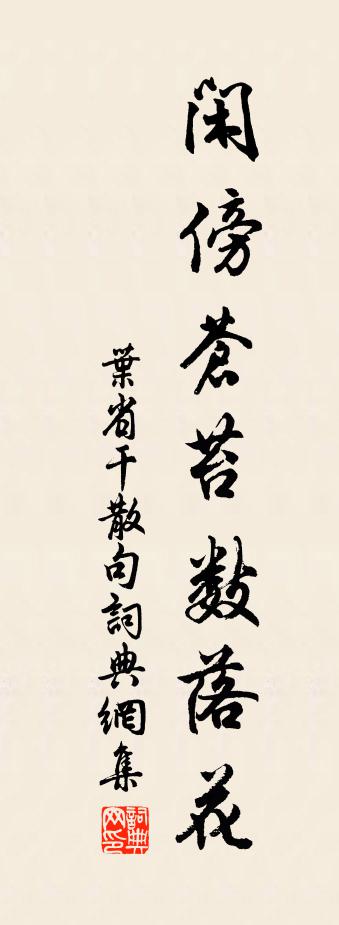 閑傍蒼苔數落花
葉省干散句詞典網集
詞典網印